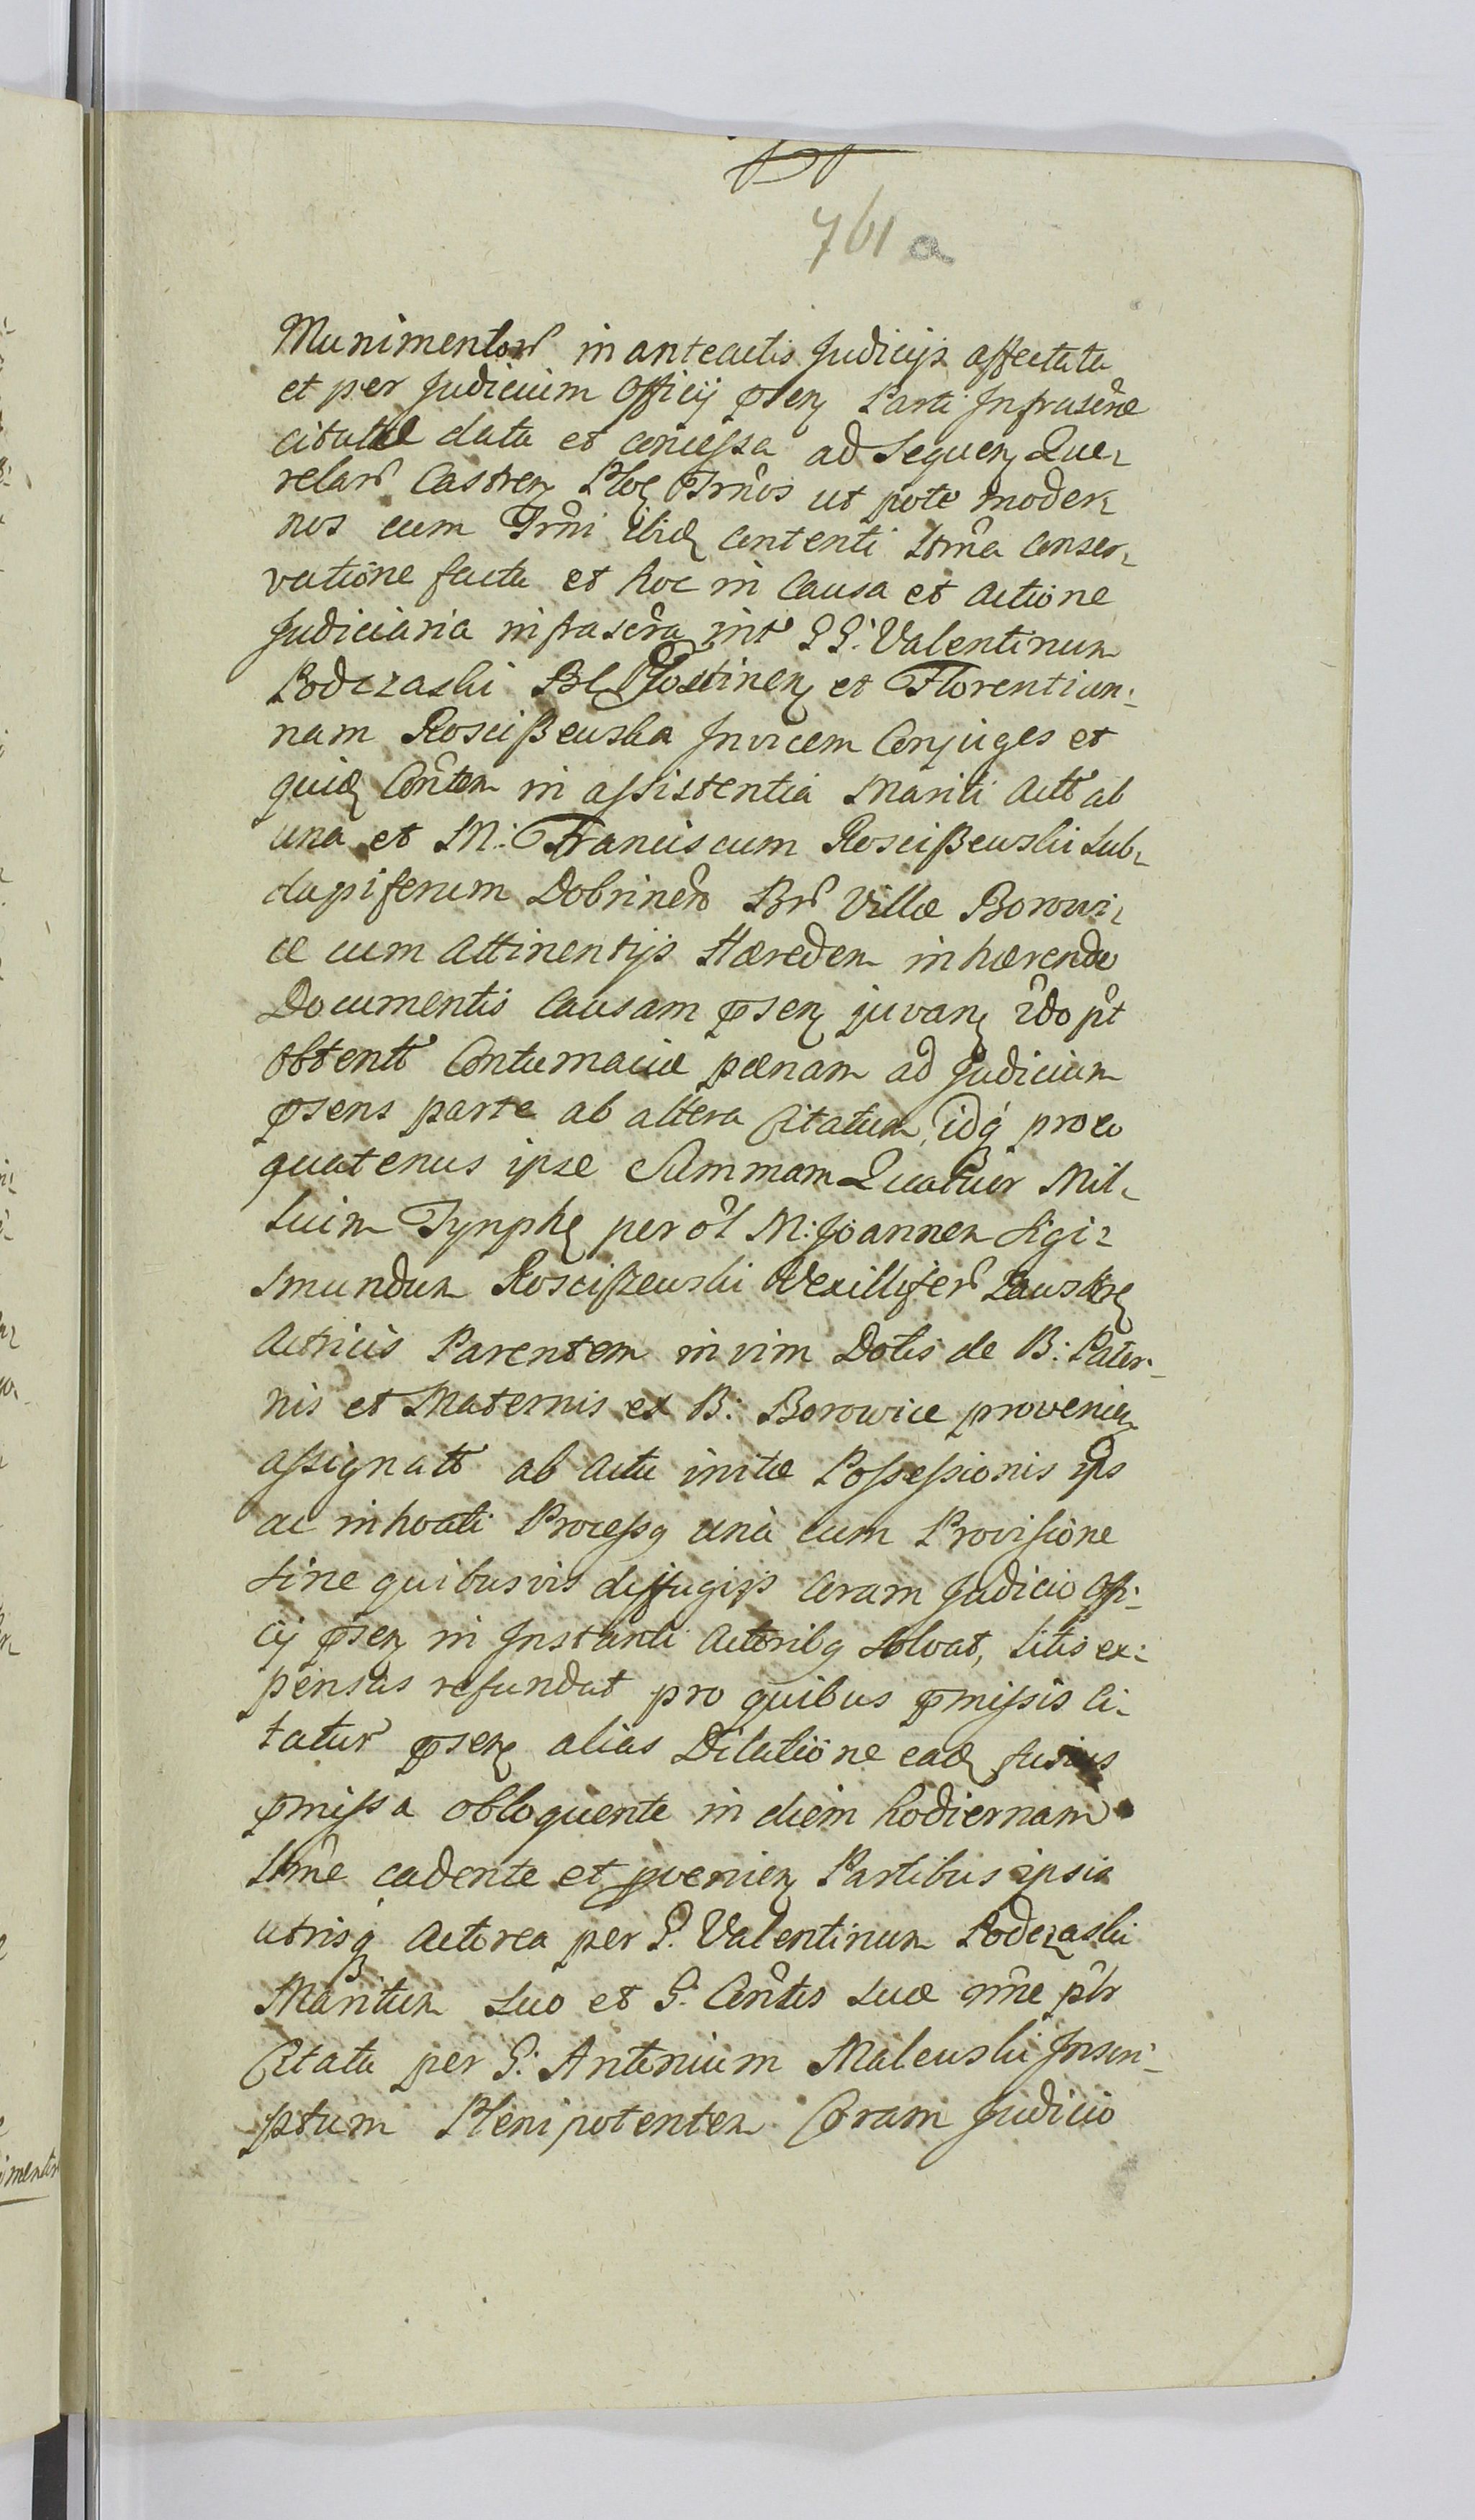 761 a
Munimentor in anteactis Judicijs affectata
et per Judicium Officij psen Parti Infrascrie
citatæ data et concessa ad Sequen Que-
relar Castren Ploc Trnos ut pote moder-
nos cum Trni ibid contenti ltima conser-
vatione facta et hoc in Causa et Actione
Judiciaria infrascra int GG: Valentinum
Podczaski Bl Gostinen et Florentian-
nam Rosciszewska Invicem Conjuges et
quid Contem in assistentia Mariti Actt ab
una et M: Franciscum Rosciszewski Sub-
dapiferum Dobrinen Br Villæ Borowi-
ce cum Attinentijs Hæredem inhærendo
Documentis Causam psen juvan rdo pt
obtentt Contumaciæ pænam ad Judicium
psens parte ab altera Citatum, idq pro eo
quatenus ipse Summam Quatuor Mil-
lium Tynph per ol M: Joannem Sigi-
smundum Rosciszewski Vexillifer Zauskre
Actricis Parentem in vim Dotis de B: Pater-
nis et Maternis ex B: Borowice provenien
assignatt ab actu initæ Possessionis ips
ac inhoati Processq una cum Provisione
sine quibusvis diffugijs Coram Judicio Offi-
cij psen in Instanti Actoribq solvat, litis ex-
pensas refundat pro quibus pmissis ci-
tatur psen alias Dilatione ead fusius
pmissa obloquente in diem hodiernam
ltime cadente et pvenien Partibus ipsis
utrisq Actorea per G. Valentinum Podczaski
Maritum suo et G. Contis suæ nne phr
Citata per G: Antonium Malewski Inscri-
ptum Plenipotentem Coram Judicio